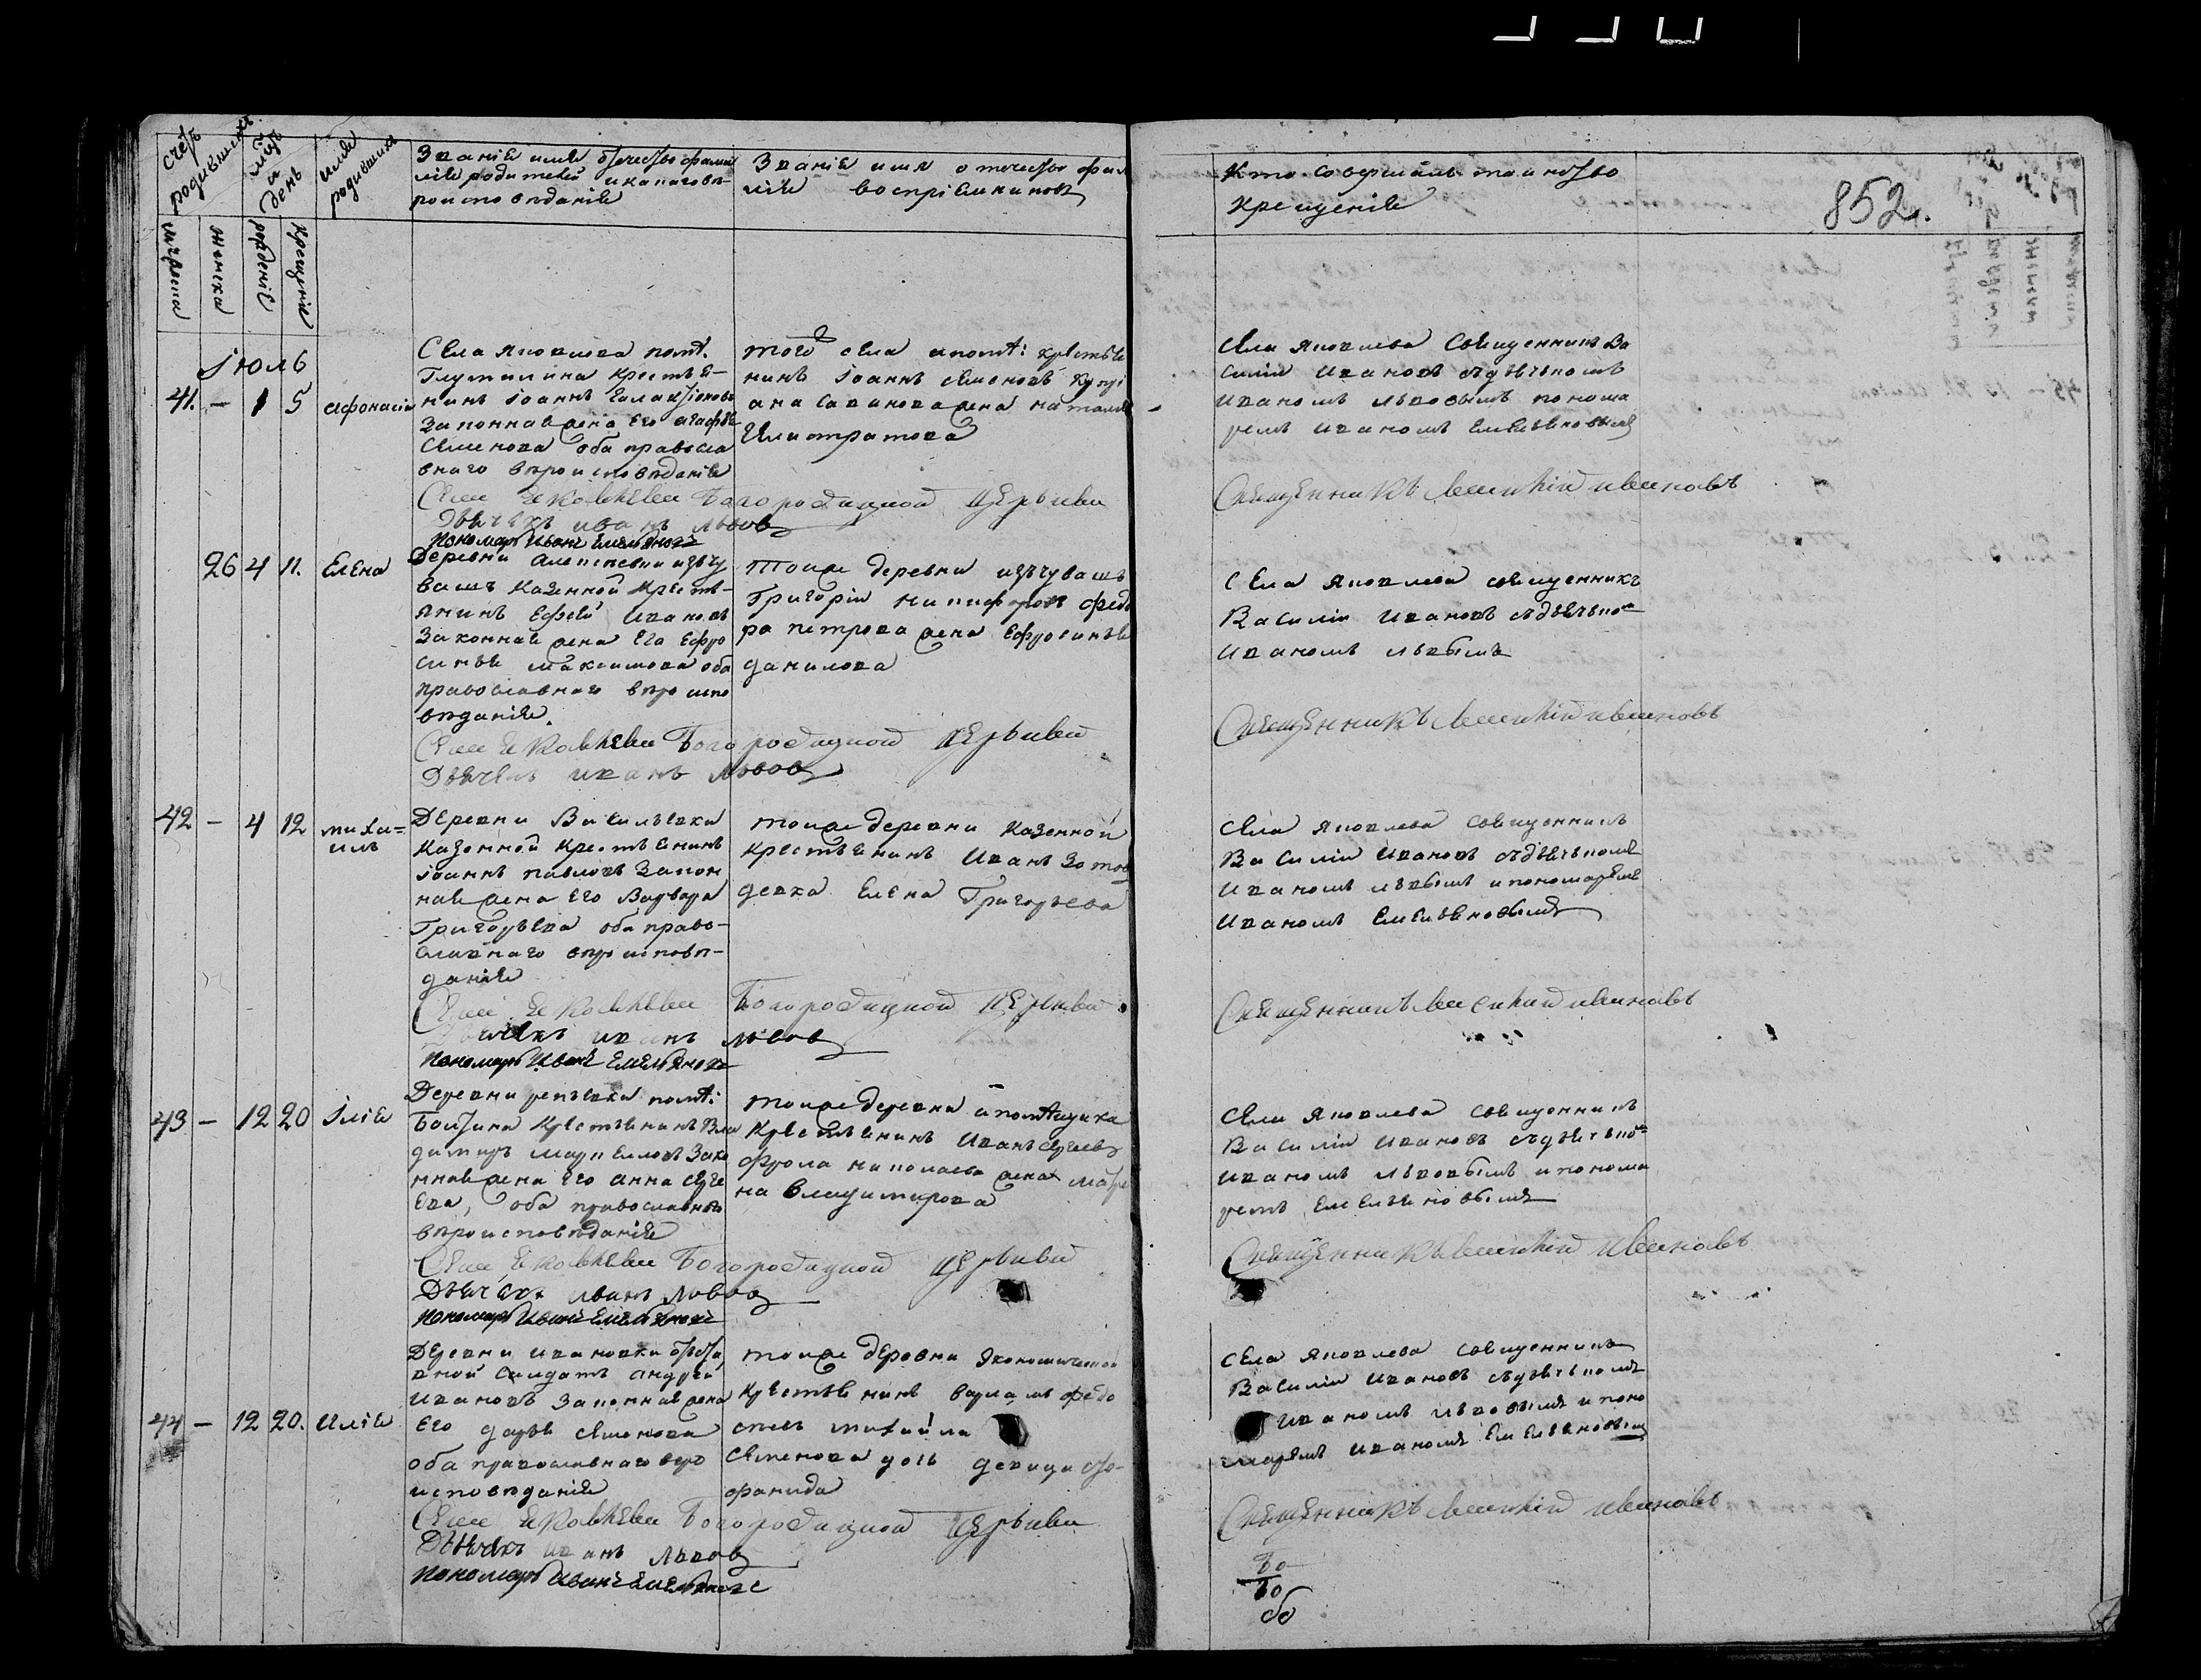 счетъ родившихся
мѣсяцъ и день
имя родившихся
Званіе имя отечество фами
ліе родителей и какаго вѣ-
роисповѣданіе
Званіе имя отечество фами
ліе воспріемниковъ
Кто совершалъ таинство
крещеніе
852.
женска
рожденіе
крещеніе
іюль
41. — 1 5 Афонасій
Села Яковлева помѣ:
крестья-
нинъ Іоаннъ
законная жена его Агафья
Семенова оба правосла
внаго вѣроисповѣданіе
того села и помѣ: крестья
нинъ Іоаннъ Семеновъ
жена Наталья
Села Яковлева священникъ Ва
силій Ивановъ съ дьячькомъ
Иваномъ Львовымъ понома
ремъ Иваномъ Емельяновымъ
Села Яковлева Богородицкой церькви
Дьячекъ Иванъ Львовъ
Пономарь Иванъ Емельяновъ
Священникъ Василій Ивановъ
26 4 11. Елена
Деревни изъ чу
вашъ казенной кресть-
янинъ Ефрей Ивановъ
законная жена его Ефро
синья Максимова оба
православнаго вѣроиспо
вѣданіе.
тоиже деревни изъ чувашъ
Григорій Никифоровъ Федо
ра Петрова жена Ефросинья
Данилова
Села Яковлева священникъ
Василій Ивановъ съ дьячько
Иваномъ Львовымъ
Села Яковлева Богородицкой церькви
Дьячекъ Иванъ Львовъ
Священникъ Василій Ивановъ
42 — 4 12 Михаи=
илъ
Деревни Васильевки
казенной крестьенинъ
Іоаннъ Павловъ закон
ная жена его Варвара
Григорьева оба право-
славнаго вѣроисповѣ-
даніе
тоиже деревни казенной
крестьенинъ Иванъ Зотов
девка Елена Григорьева
Села Яковлева священникъ
Василій Ивановъ съ дьячькомъ
Иваномъ Львовымъ и пономаремъ
Иваномъ Емельяновымъ
Села Яковлева Богородицкой церькви
Дьячекъ Иванъ Львовъ
Пономарь Иванъ Емельяновъ
Священникъ Василій Ивановъ
43 — 12 20 Іліе
Деревни Репьевки помѣ:
крестьенинъ Вла
димиръ Маркелловъ зако
нная жена его Анна Серге
ева, оба православнаго
вѣроисповѣданіе
тоиже деревни и помѣщика
крестьенинъ Иванъ Сергеевъ
Фрола Николаева жена Мари
на Владимирова
Села Яковлева священникъ
Василій Ивановъ съ дьячько
Иваномъ Львовымъ и понома
ремъ Емельяновымъ
Села Яковлева Богородицкой церькви
Дьячекъ Иванъ Львовъ
Пономарь Иванъ Емельяновъ
Священникъ Василій Ивановъ
44 — 12 20. Иліе
Деревни Ивановки отста
вной салдатъ Андрей
Ивановъ законная жена
его Дарья Семенова
оба православнаго веро
исповѣданіе
тоиже деровни економической
крестьенинъ Варламъ Федо
Михайла
Семенова дочь девица
Села Яковлева священникъ
Василій Ивановъ съ дьячькомъ
Иваномъ Львовымъ и поно
маремъ Иваномъ Емельяновым
Села Яковлева Богородицкой церькви
Дьячекъ Иванъ Львовъ
Пономарь Иванъ Емельяновъ
Священникъ Василій Ивановъ